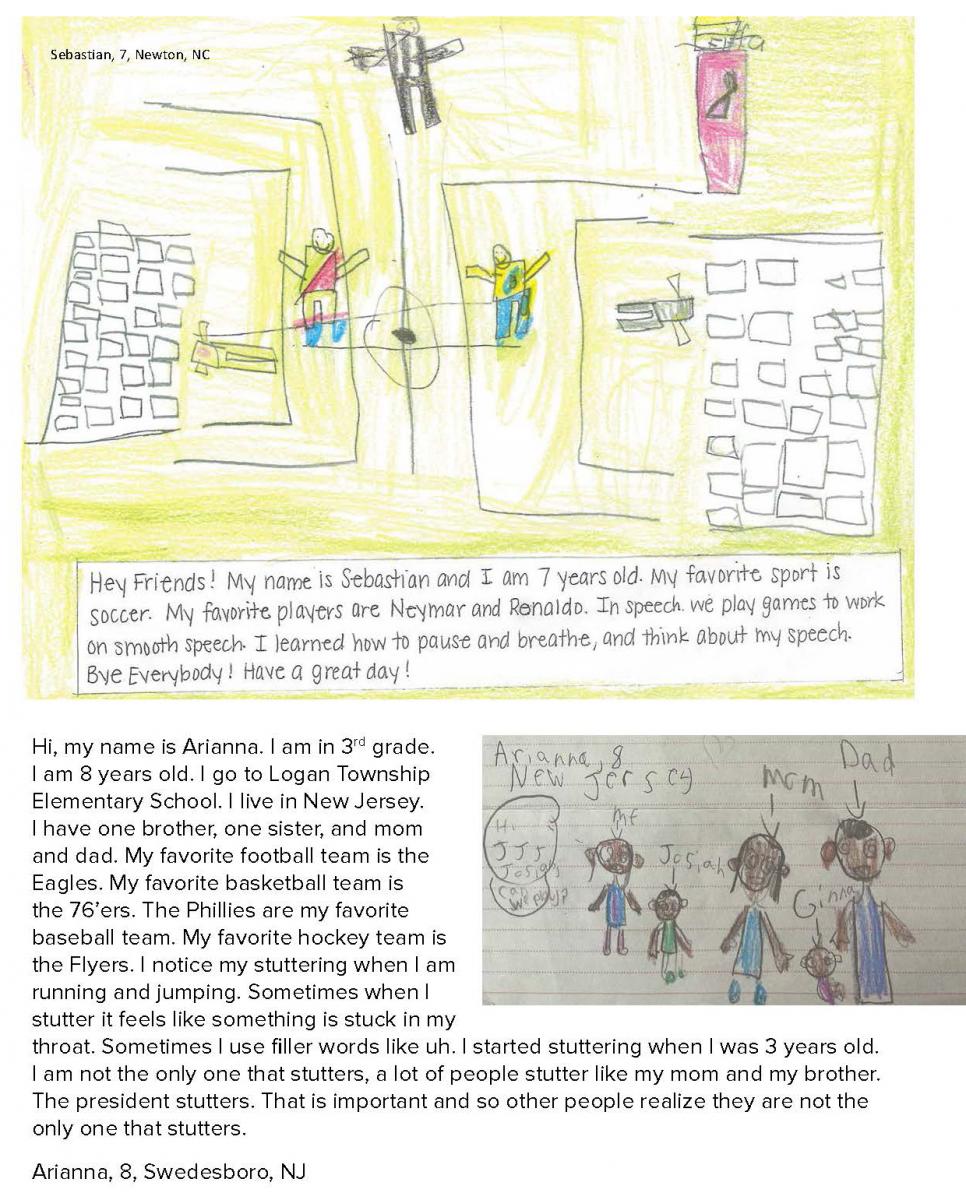 Sebastian, 7, Newton, NC
Hey Friends! My name is Sebastian and I am 7 years old. My favorite sport is
soccer. My favorite players are Neymar and Ronaldo. In speech. we play games to work
on smooth speech. I learned how to pause and breathe, and think about my speech.
Bye Everybody! Have a great day!
Hi, my name is Arianna. I am in 3rd grade.
I am 8 years old. I go to Logan Township
Elementary School. I live in New Jersey.
I have one brother, one sister, and mom
and dad. My favorite football team is the
Eagles. My favorite basketball team is
the 76’ers. The Phillies are my favorite
baseball team. My favorite hockey team is
the Flyers. I notice my stuttering when I am
running and jumping. Sometimes when I
stutter it feels like something is stuck in my
throat. Sometimes I use filler words like uh. I started stuttering when I was 3 years old.
I am not the only one that stutters, a lot of people stutter like my mom and my brother.
The president stutters. That is important and so other people realize they are not the
only one that stutters.
Arianna, 8, Swedesboro, NJ
Arianna, 8
New Jersey
Mom
Dad
me
Josiah
Ginna
Hi
JJJ
Josiah
can
we play?